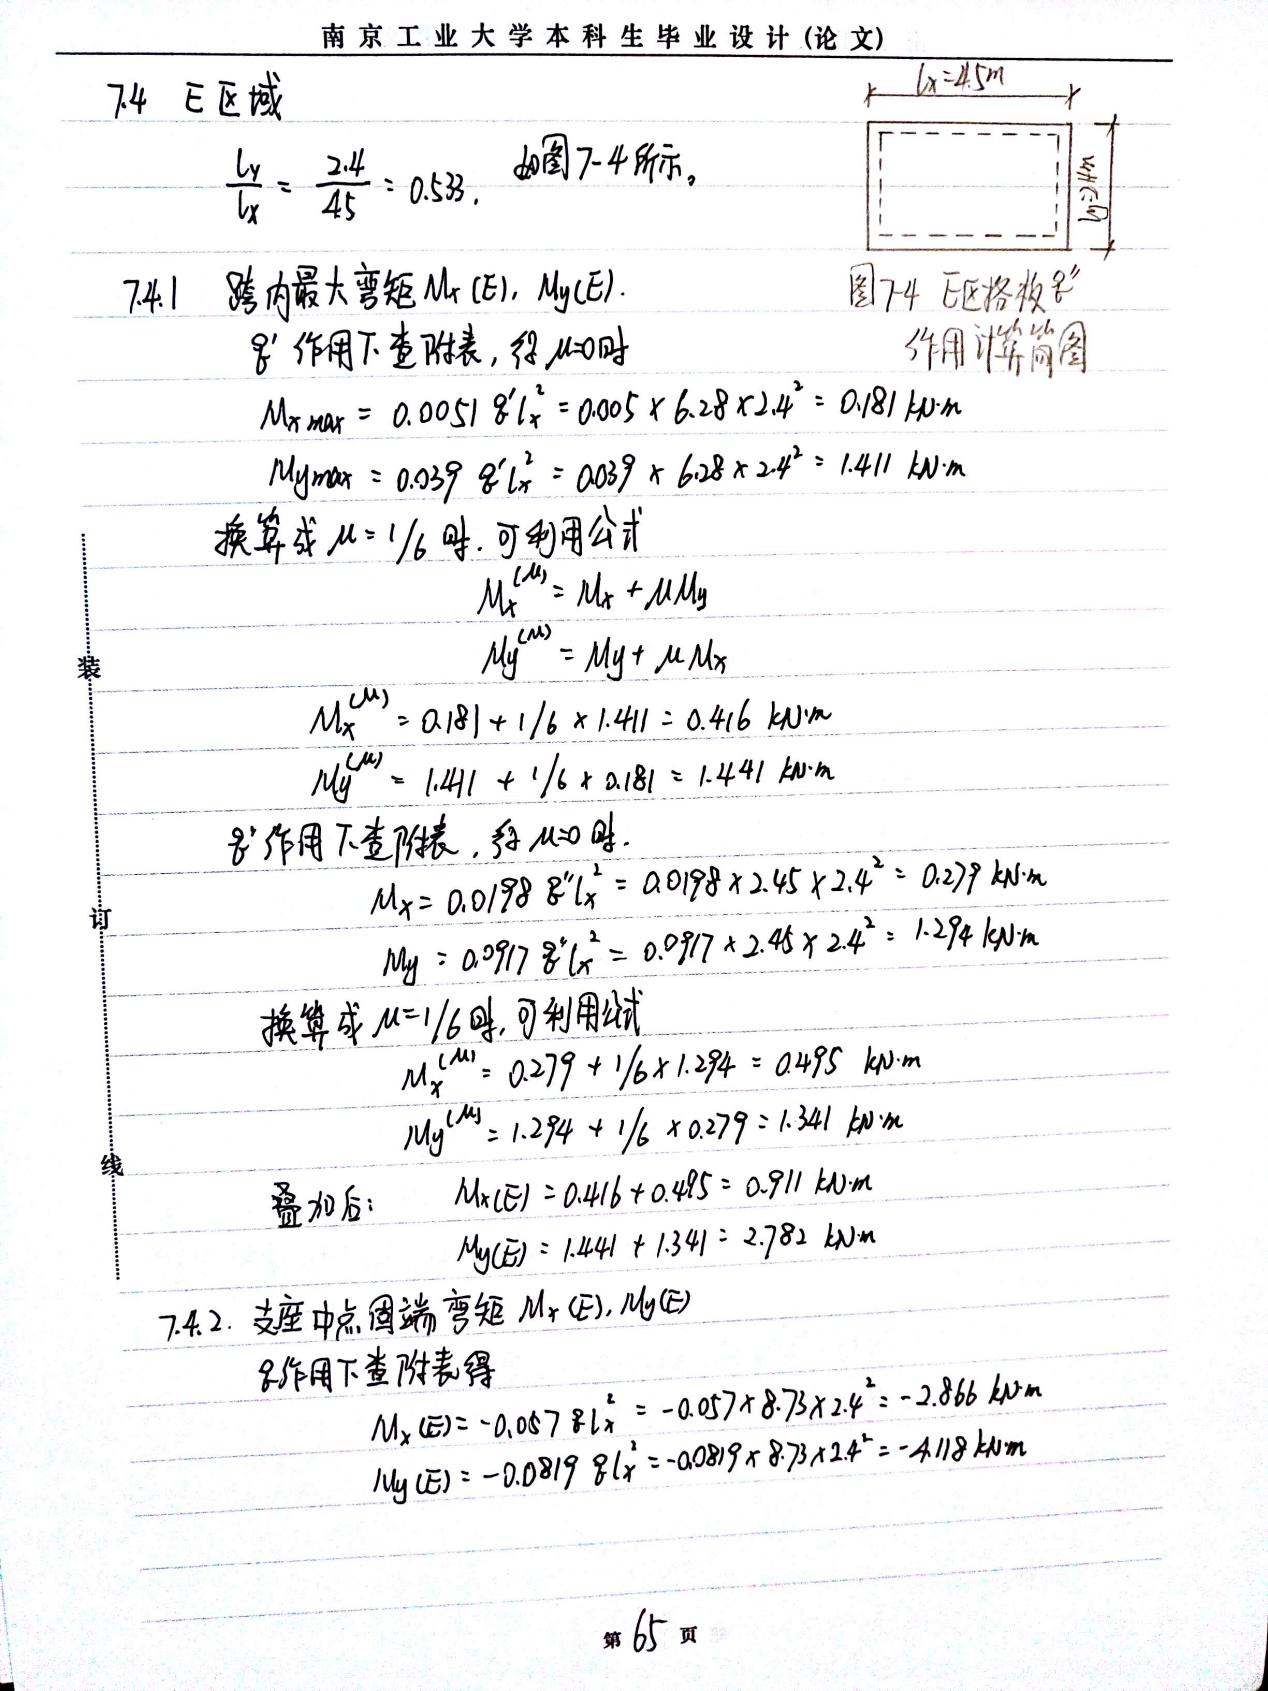 南京工业大学本科生毕业设计(论文)
7.4 E区域
lx=4.5m
ly/lx = 2.4/4.5 = 0.533, 如图7-4所示。
ly=2.4m
7.4.1 跨内最大弯矩Mx(E), My(E).
图7-4 E区格板q''
作用计算简图
q' 作用下查附表, 得 μ=0时
Mxmax = 0.0051 q'lx² = 0.005 × 6.28 × 2.4² = 0.181 kN·m
Mymax = 0.039 q'lx² = 0.039 × 6.28 × 2.4² = 1.411 kN·m
换算成 μ=1/6 时. 可利用公式
Mx^(μ) = Mx + μMy
My^(μ) = My + μMx
Mx^(μ) = 0.181 + 1/6 × 1.411 = 0.416 kN·m
My^(μ) = 1.411 + 1/6 × 0.181 = 1.441 kN·m
q'作用下查附表, 得 μ=0时.
Mx = 0.0198 q''lx² = 0.0198 × 2.45 × 2.4² = 0.279 kN·m
My = 0.0917 q''lx² = 0.0917 × 2.45 × 2.4² = 1.294 kN·m
换算成 μ=1/6时, 可利用公式
Mx^(μ) = 0.279 + 1/6 × 1.294 = 0.495 kN·m
My^(μ) = 1.294 + 1/6 × 0.279 = 1.341 kN·m
叠加后: Mx(E) = 0.416 + 0.495 = 0.911 kN·m
My(E) = 1.441 + 1.341 = 2.782 kN·m
7.4.2. 支座中点固端弯矩 Mx(E), My(E)
q作用下查附表得
Mx(E) = -0.057 qlx² = -0.057 × 8.73 × 2.4² = -2.866 kN·m
My(E) = -0.0819 qlx² = -0.0819 × 8.73 × 2.4² = -4.118 kN·m
装
订
线
第 65 页